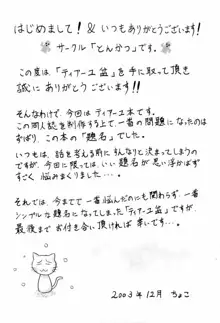 はじめまして！＆いつもありがとうございます！
サークル「とんかつ」です。
この度は、「ティアーユ 盆」を手に取って頂き
誠にありがとうございます!!
そんなわけで、今回はティアーユ本です。
この同人誌を制作する上で、一番の問題になったのは
ずばり、この本の「題名」でした。
いつもは、話を考える前にすんなりと決まってしまうのです
が、今回に限っては、いい題名が思い浮かばず
すごく悩みまくりました…。
それでは、今までで一番悩んだのにも関わらず、一番
シンプルな題名になってしまった「ティアーユ盆」ですが、
最後までお付き合い頂ければ幸いです…。
2003年12月 ちょこ